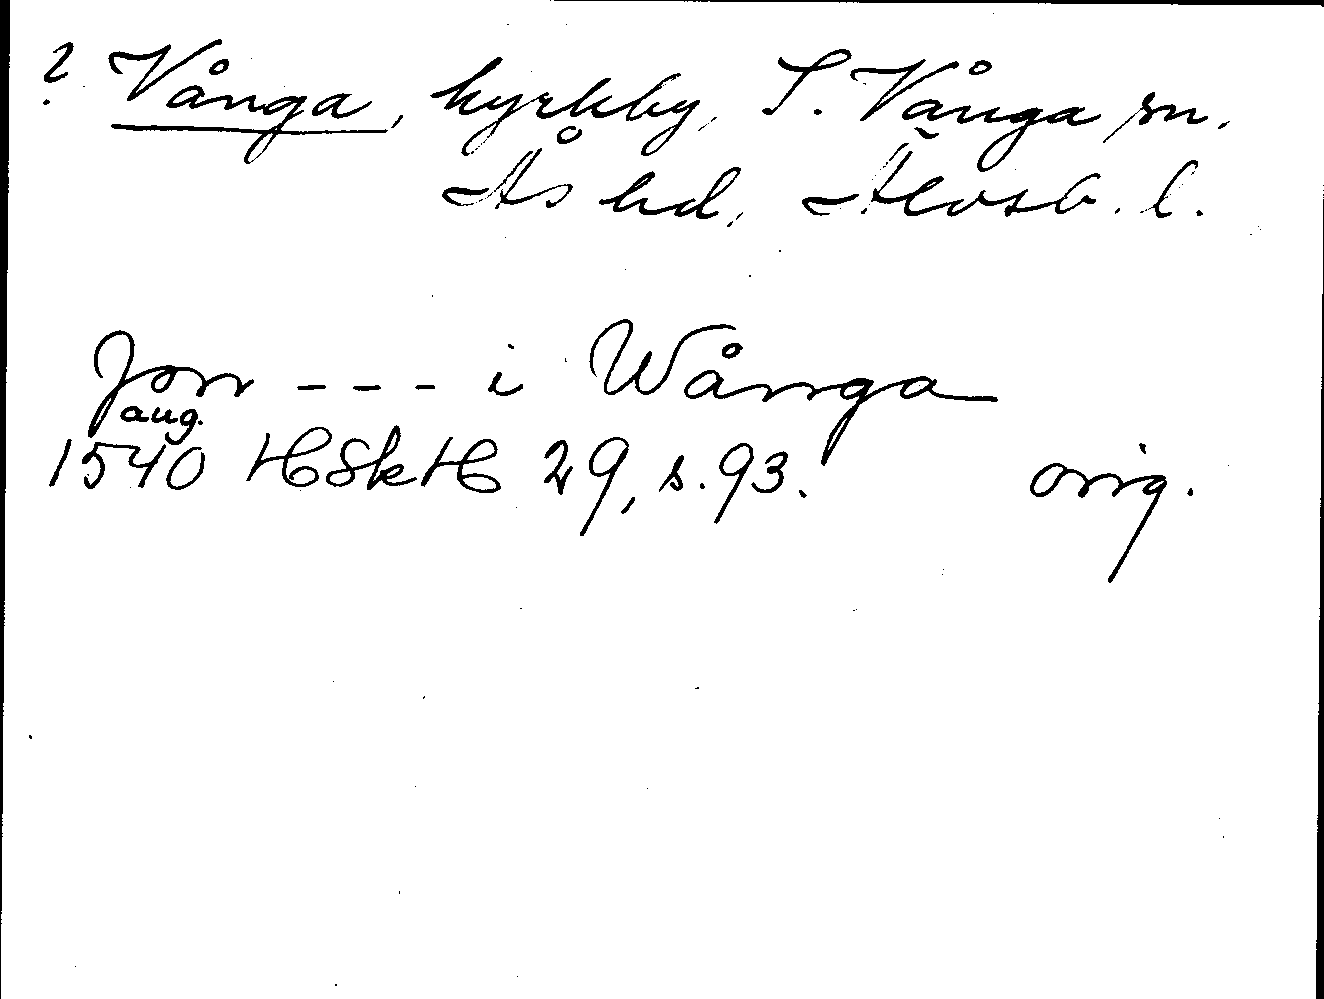 ? Vånga, kyrkby, S. Vånga sn.
Ås hd, Älvsb. l.
Jon --- i Wånga
aug.
1540 HSkH 29, s. 93. orig.